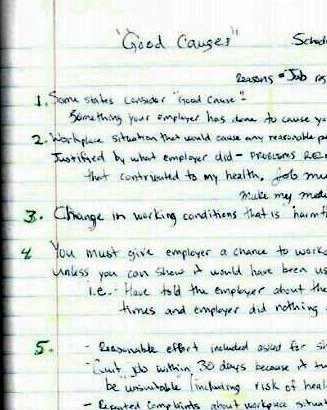 "Good Causes"
Sched
Reasons • Job re
1. Some states consider "Good Cause" -
Something your employer has done to cause yo
2. Workplace situation that would cause any reasonable pe
Justified by what employer did - PROBLEMS REL
that contributed to my health, job mu
make my med
3. Change in working conditions that is harmf
4 You must give employer a chance to work
unless you can show it would have been us
i.e.: Have told the employer about the
times and employer did nothing
5. - Reasonable effort included asked for sh
- Quit job within 30 days because it tu
be "unsuitable" [including risk of heal
- Repeated complaints about workplace situa